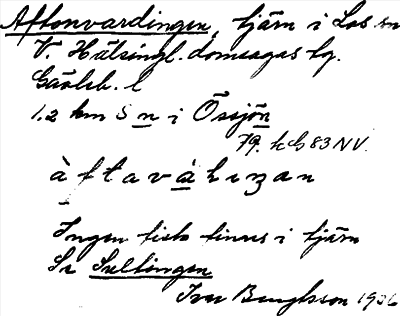 Aftonvardingen, tjärn i Los sn
V. Hälsingl. domsagas tg.
Gävleb. l
1.2 km S n i Össjön
79. kG 83 NV.
àftavàhızan
Ingen fisk finns i tjärn
Se Sultingen
Ivar Bengtsson 1936